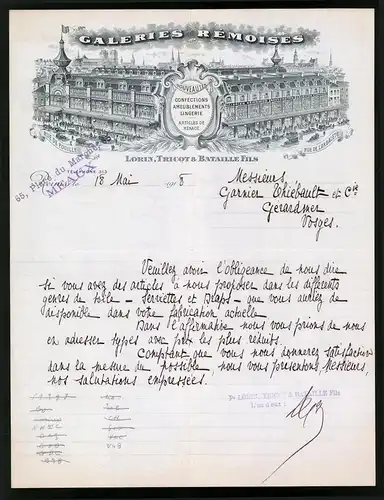 GALERIES REMOISES
NOUVEAUTÉS
CONFECTIONS
AMEUBLEMENTS
LINGERIE
ARTICLES DE
MÉNAGE
LORIN, TRICOT & BATAILLE FILS
TÉLÉPHONE
65, Place du Marché
MEAUX
18 Mai 8
Messieurs,
Garnier Thiébault et Cie
Gerardmer
Vosges.
Veuillez avoir l'obligeance de nous dire
si vous avez des articles à nous proposer dans les différents
genres de toile – Serviettes et Draps – que vous auriez de
disponible dans votre fabrication actuelle.
Dans l'affirmative nous vous prions de nous
en adresser types avec prix les plus réduits.
Comptant que vous nous donnerez satisfaction
dans la mesure du possible, nous vous présentons, Messieurs,
nos salutations empressées.
Pr LORIN, TRICOT & BATAILLE Fils